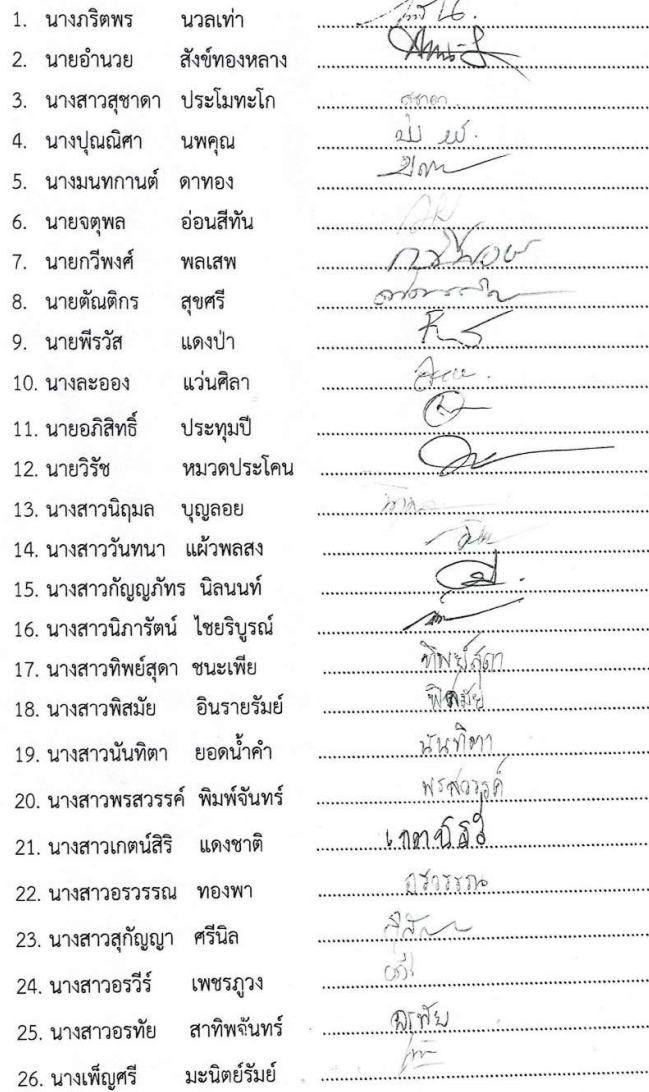 1. นางภริตพร นวลเท่า
2. นายอำนวย สังข์ทองหลาง
3. นางสาวสุชาดา ประโมทะโก สุชาดา
4. นางปุณณิศา นพคุณ
5. นางมนทกานต์ ดาทอง
6. นายจตุพล อ่อนสีทัน
7. นายกวีพงศ์ พลเสพ กวีพงษ์
8. นายตัณติกร สุขศรี
9. นายพีรวัส แดงป่า
10. นางละออง แว่นศิลา
11. นายอภิสิทธิ์ ประทุมปี
12. นายวิรัช หมวดประโคน
13. นางสาวนิฤมล บุญลอย
14. นางสาววันทนา แผ้วพลสง
15. นางสาวกัญญภัทร นิลนนท์
16. นางสาวนิภารัตน์ ไชยริบูรณ์
17. นางสาวทิพย์สุดา ชนะเพีย ทิพย์สุดา
18. นางสาวพิสมัย อินรายรัมย์ พิสมัย
19. นางสาวนันทิตา ยอดน้ำคำ นันทิตา
20. นางสาวพรสวรรค์ พิมพ์จันทร์ พรสวรรค์
21. นางสาวเกตน์สิริ แดงชาติ เกตน์สิริ
22. นางสาวอรวรรณ ทองพา อรวรรณ
23. นางสาวสุกัญญา ศรีนิล
24. นางสาวอรวีร์ เพชรภูวง
25. นางสาวอรทัย สาทิพจันทร์ อรทัย
26. นางเพ็ญศรี มะนิตย์รัมย์